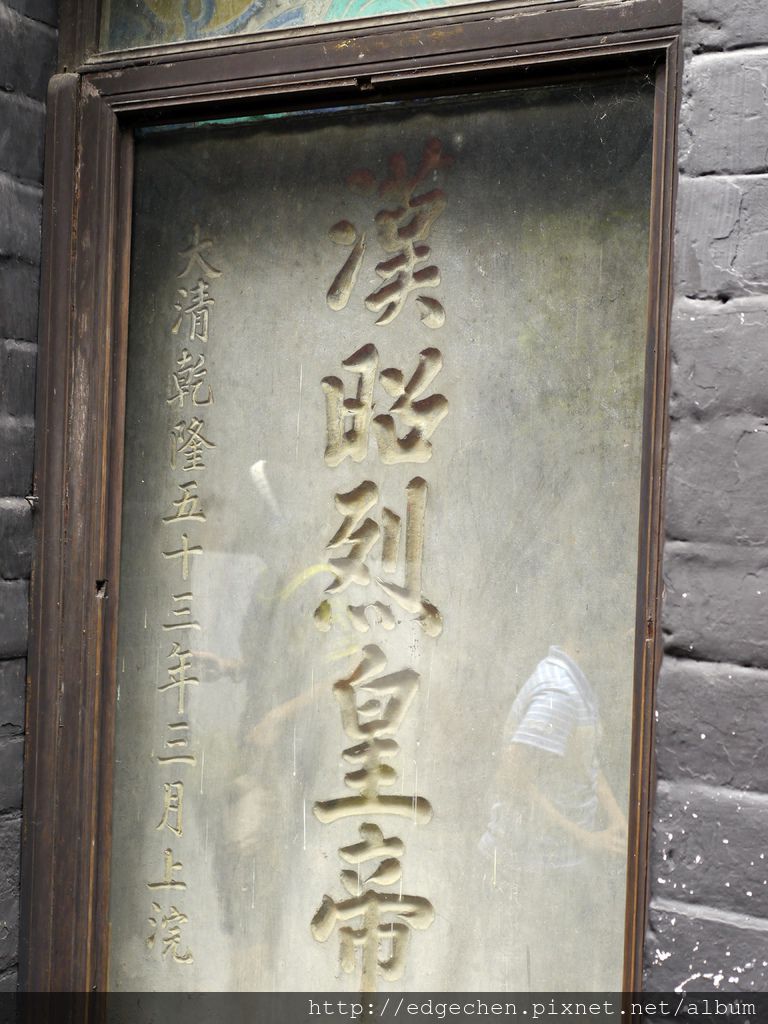 漢昭烈皇帝
大清乾隆五十三年三月上浣
http://edgechen.pixnet.net/album